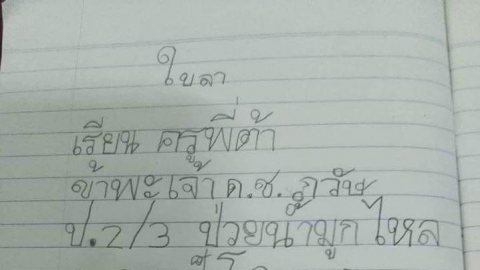 ใบลา
เรียน ครูพี่ต้า
ข้าพะเจ้า ด.ช. ภูวัฒ
ป.2/3 ป่วยน้ำมูกไหล